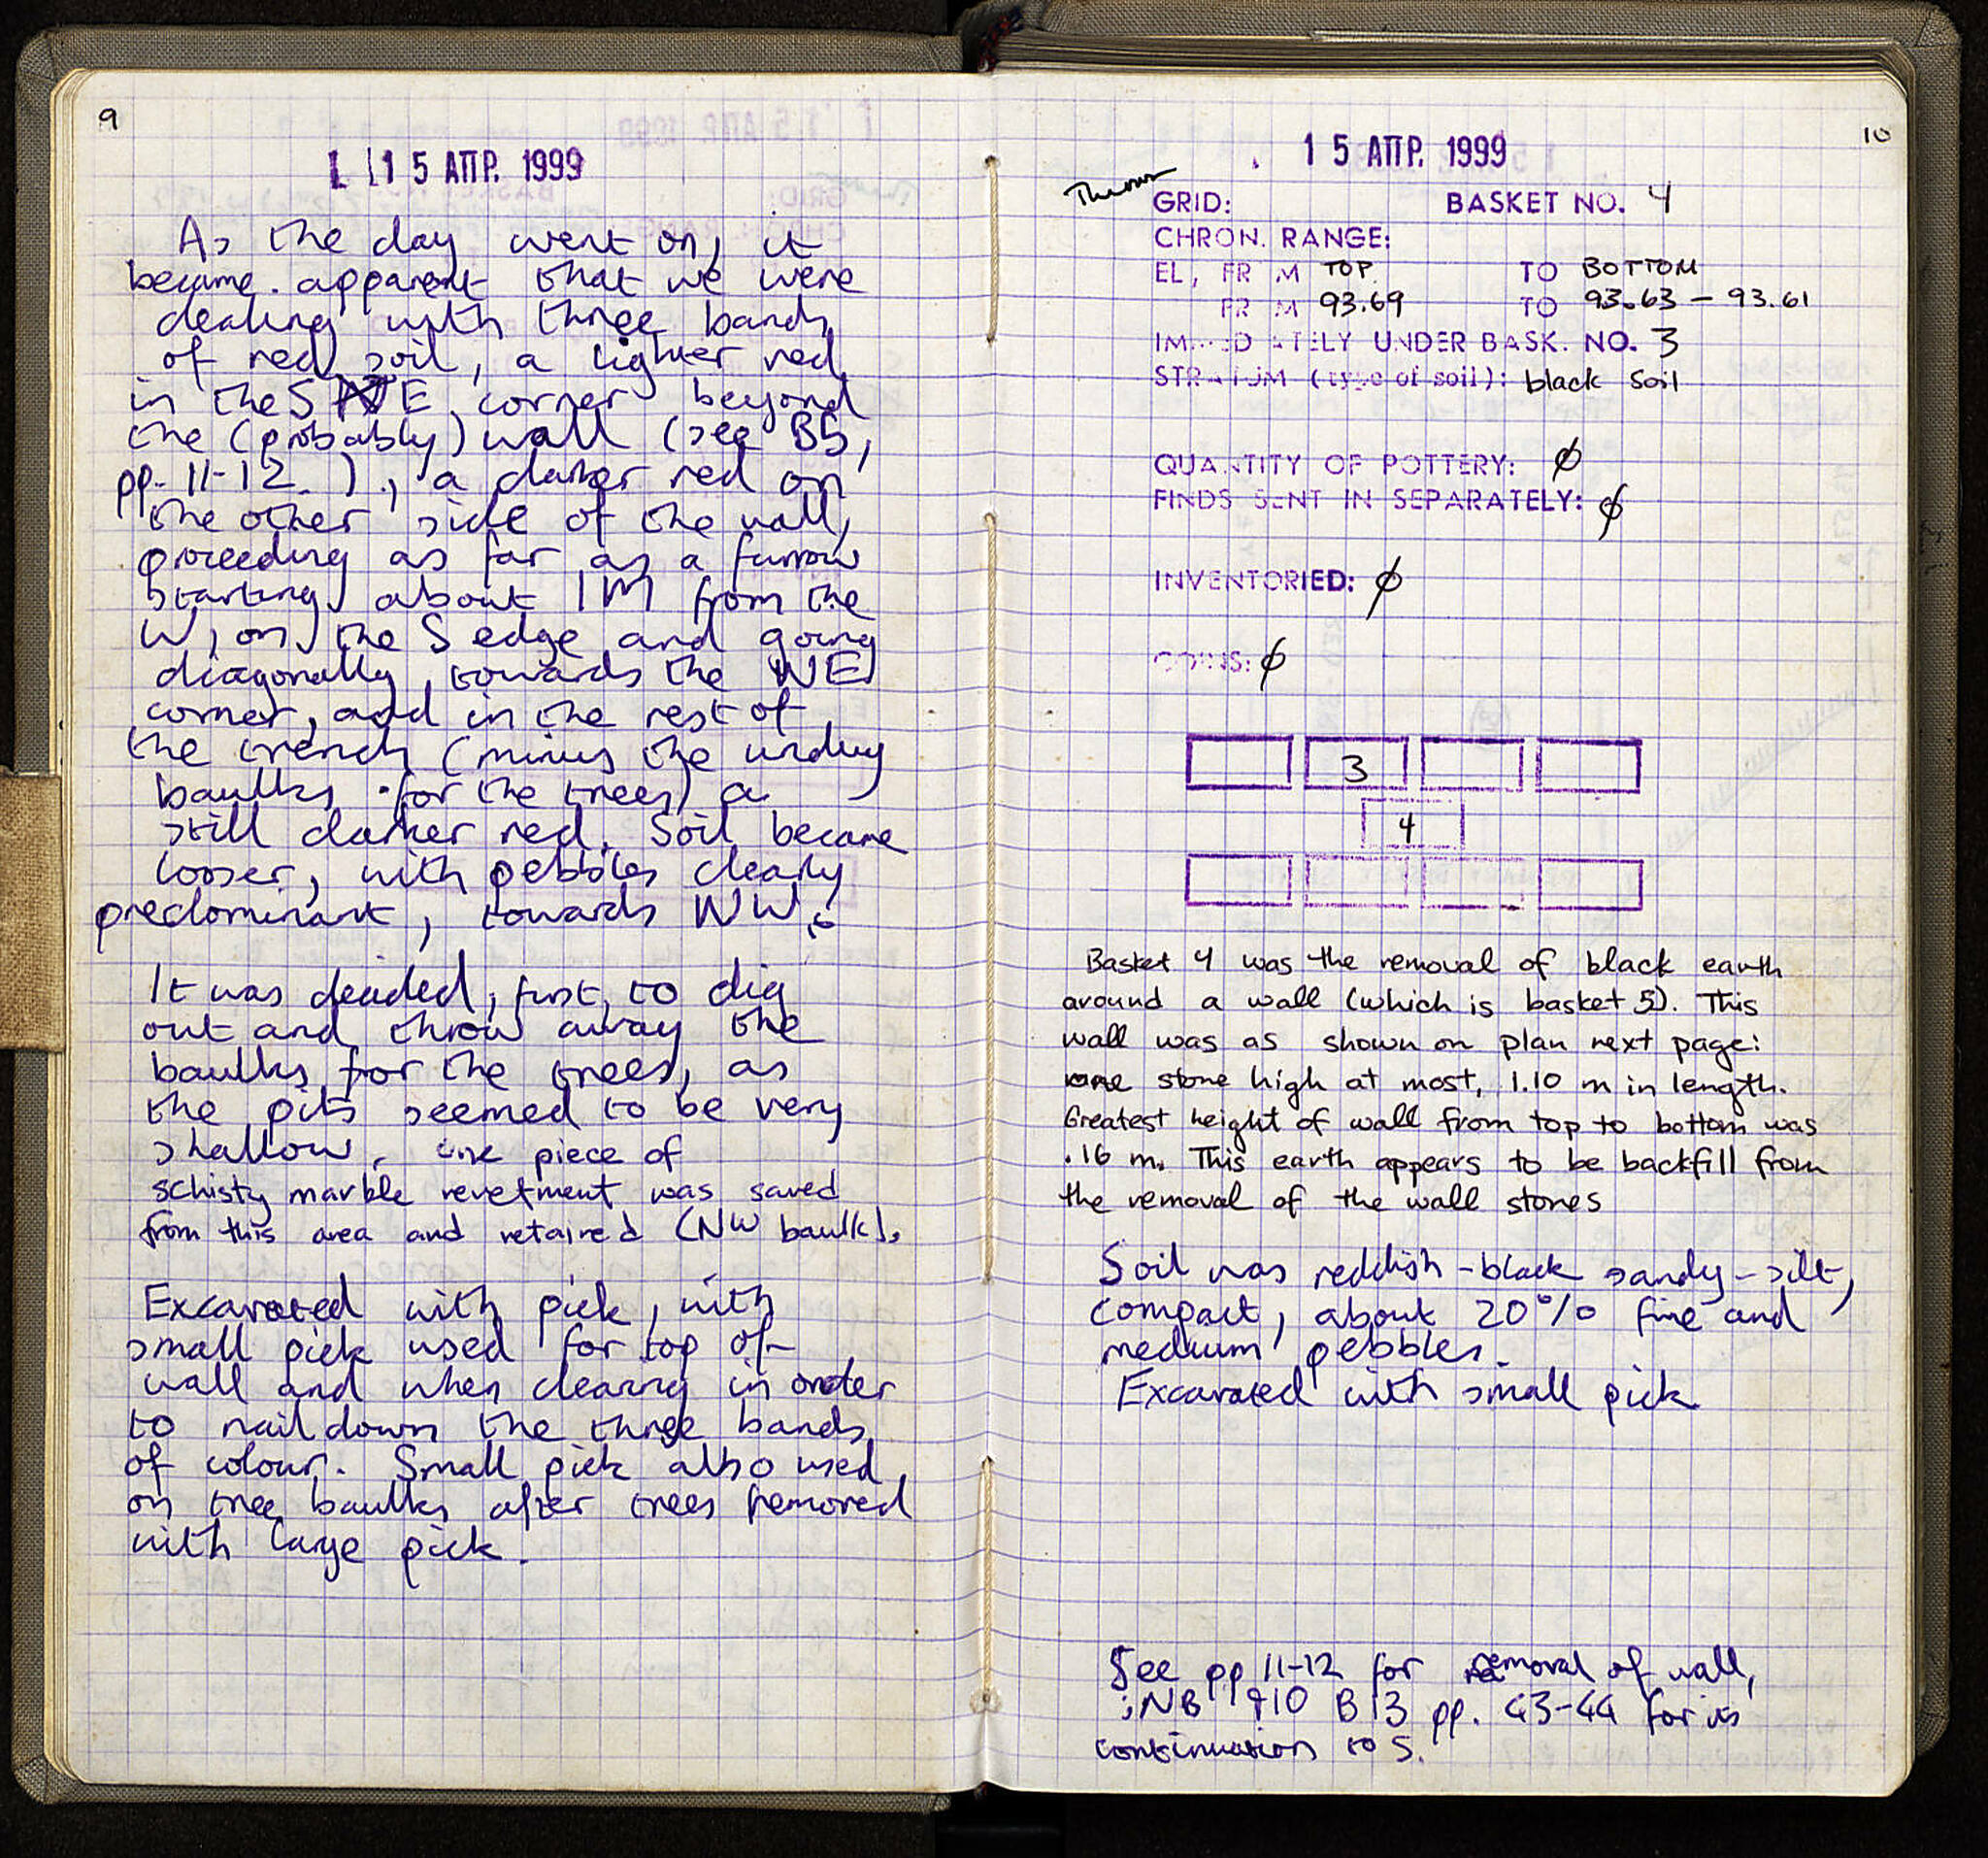 9
15 ΑΠΡ. 1999
As the day went on, it
became apparent that we were
dealing with three bands
of red soil, a lighter red
in the SE corner beyond
the (probably) wall (see B5,
pp. 11-12.), a darker red on
the other side of the wall,
proceeding as far as a furrow
starting about 1M from the
W, on the S edge and going
diagonally towards the NE
corner, and in the rest of
the trench (minus the unduy
baulks for the trees) a
still darker red. Soil became
looser, with pebbles clearly
predominant, towards NW.
It was decided, first, to dig
out and throw away the
baulks for the trees, as
the pits seemed to be very
shallow. one piece of
schisty marble revetment was saved
from this area and retained (NW baulk).
Excavated with pick, with
small pick used for top of
wall and when clearing in order
to nail down the three bands
of colour. Small pick also used
on tree baulks after trees removed
with large pick.
10
15 ΑΠΡ. 1999
Thrown
GRID: BASKET NO. 4
CHRON. RANGE:
EL, FR M TOP TO BOTTOM
FR M 93.69 TO 93.63 - 93.61
IMMEDIATELY UNDER BASK. NO. 3
STRATUM (type of soil): black soil
QUANTITY OF POTTERY: ∅
FINDS SENT IN SEPARATELY: ∅
INVENTORIED: ∅
COINS: ∅
3
4
Basket 4 was the removal of black earth
around a wall (which is basket 5). This
wall was as shown on plan next page:
one stone high at most, 1.10 m in length.
Greatest height of wall from top to bottom was
.16 m. This earth appears to be backfill from
the removal of the wall stones
Soil was reddish-black sandy-silt,
compact, about 20% fine and
medium pebbles.
Excavated with small pick
See pp 11-12 for removal of wall,
; NB 910 B13 pp. 43-44 for its
continuation to S.